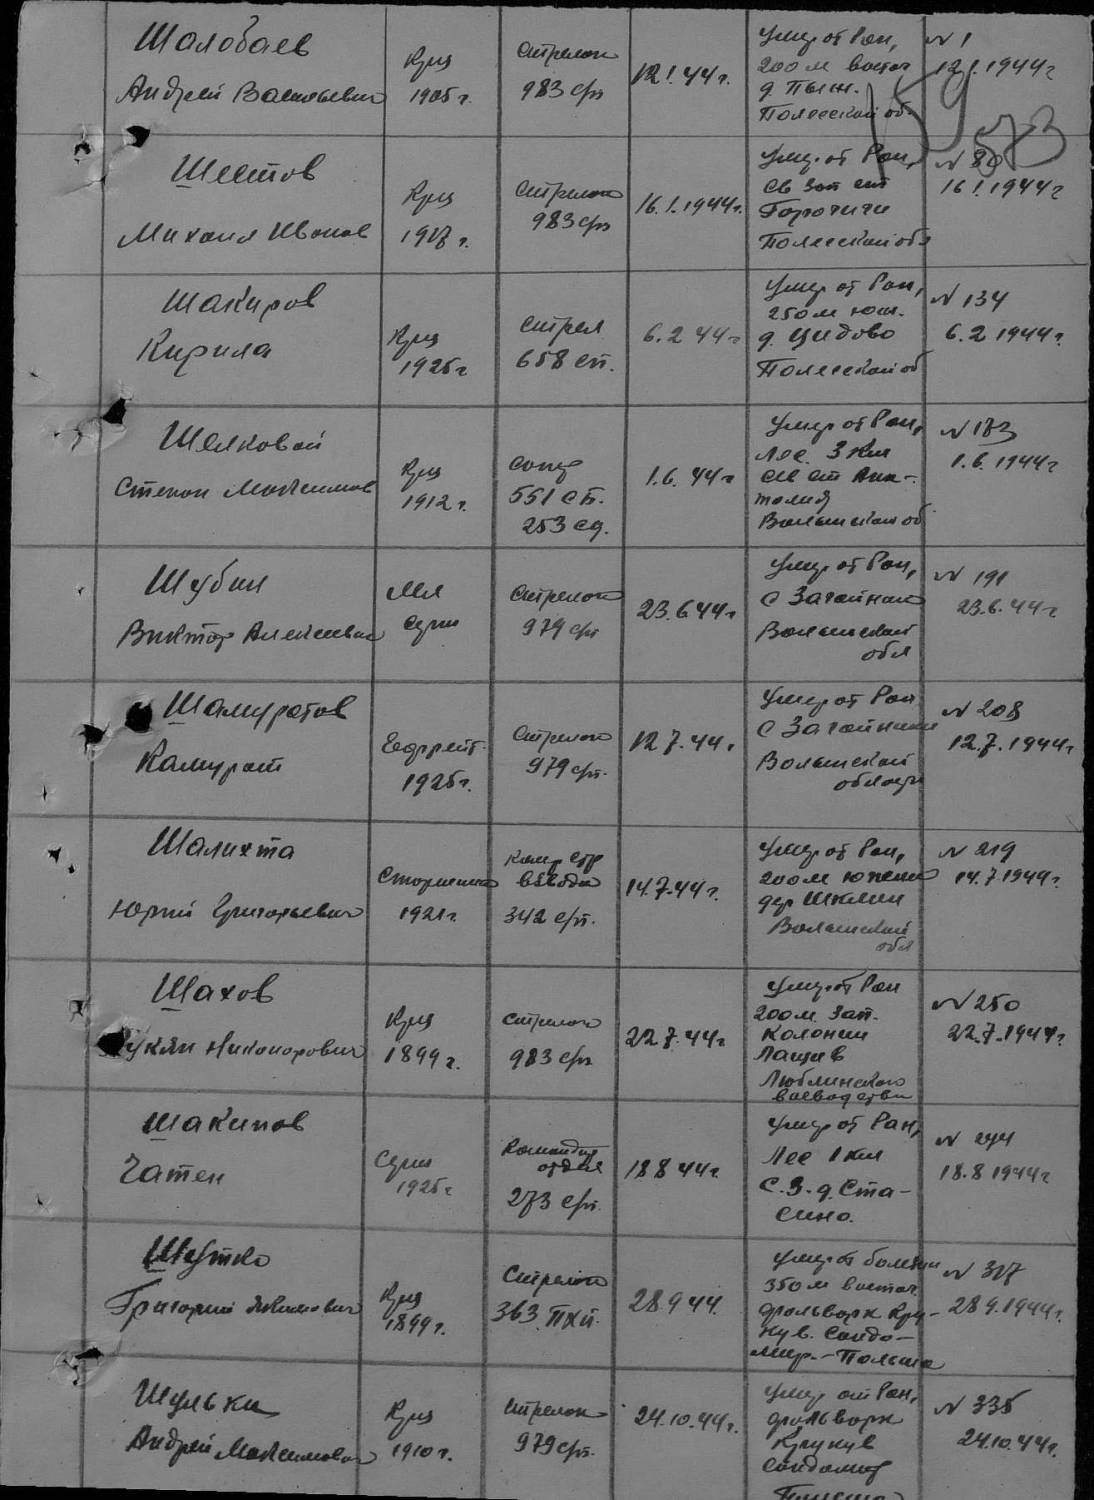 Шалобаев
Андрей Васильевич
Крц
1905 г.
Стрелок
983 сп
12.1.44 г.
Умер от Ран,
200 м восточ
д Пыж.
Полесской об.
№ 1
12.1.1944 г
159
573
Шестов
Михаил Иванов
Крц
Стрелок
983 сп
16.1.1944 г.
Умер от Ран,
св зап ст
Горочичи
Полесской обл
№ 80
16.1.1944 г
Шакиров
Кирила
Крц
1925 г
Стрел
658 сп.
6.2 44 г
Умер от Ран,
250 м юж.
д. Цидово
Полесской об
№ 134
6.2 1944 г.
Шелковой
Степан Максимов
Крц
1912 г.
551 сп.
253 сд.
1.6. 44 г
Умер от Ран,
лес. 3 км
Волынской об
№ 183
1.6. 1944 г
Шубин
Виктор Алексеевич
Мл
Серж
Стрелок
979 сп
23.6 44 г
Умер от Ран,
с Загайники
Волынской
обл
№ 191
23.6. 44 г
Шамуратов
Камурат
Ефрейт.
1925 г.
Стрелок
979 сп.
12.7.44 г
Умер от Ран
с Загайники
Волынской
области
№ 208
12.7.1944 г
Шалихта
Юрий Григорьевич
Старшина
1921 г.
Коман стр
взвода
342 сп.
14.7.44 г.
Умер от Ран,
200 м южнее
дер Шклин
Волынской
обл
№ 219
14.7.1944 г.
Шахов
Лукян Никонорович
Крц
1899 г.
Стрелок
983 сп
22.7.44 г
Умер от Ран
200 м. зап.
Колонии
Лащив
Люблинского
воеводства
№ 250
22.7.1944 г.
Шакипов
Чатен
Серж
1925 г
Командир
отдел
273 сп.
18 8 44 г
Умер от Ран,
Лес 1 км
С.З. д. Ста-
сино.
№ 294
18.8 1944 г
Шутко
Григорий Екимович
Крц
1899 г.
Стрелок
363 ПХП.
28 9 44
Умер от болезни
350 м восточ.
фольварк Кру-
кув. Сандо-
мир. - Польша
№ 317
28 9.1944 г.
Шулька
Андрей Максимович
Крц
1910 г.
Стрелок
979 сп.
24.10.44 г.
Умер от Ран,
фольварк
Крукув
Сандомир
Польша
№ 335
24.10.44 г.